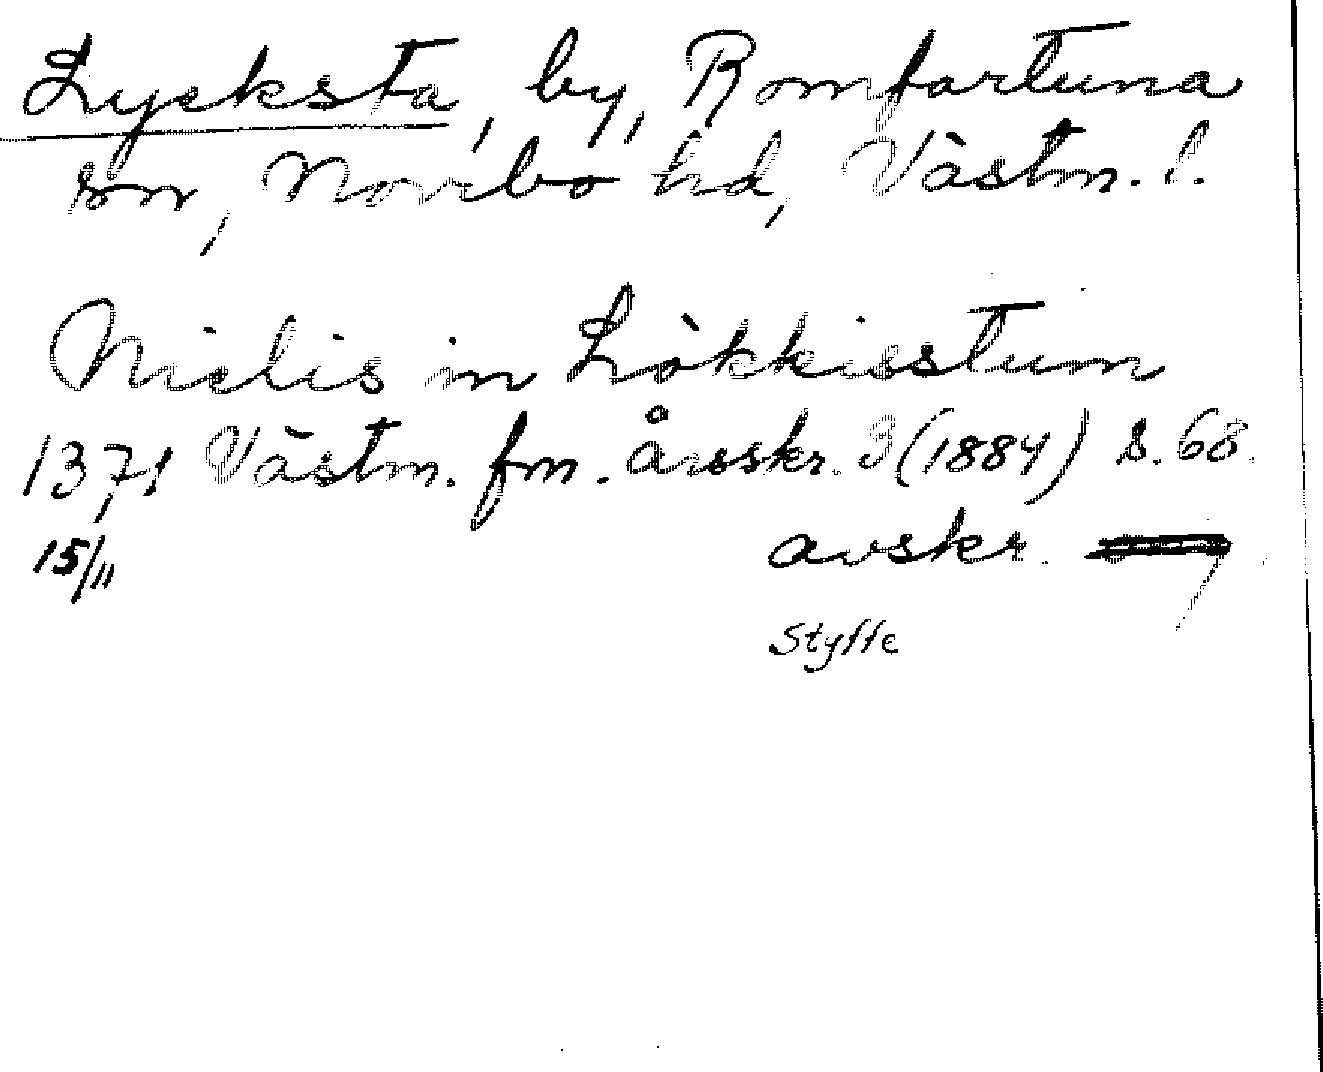 Lycksta, by, Romfartuna
sn, Norrbo hd, Västm. l.
Nielis in Lökkisstum
1371 Västm. fm. årsskr. 3 (1884) s. 68.
15/11 avskr.
Styffe